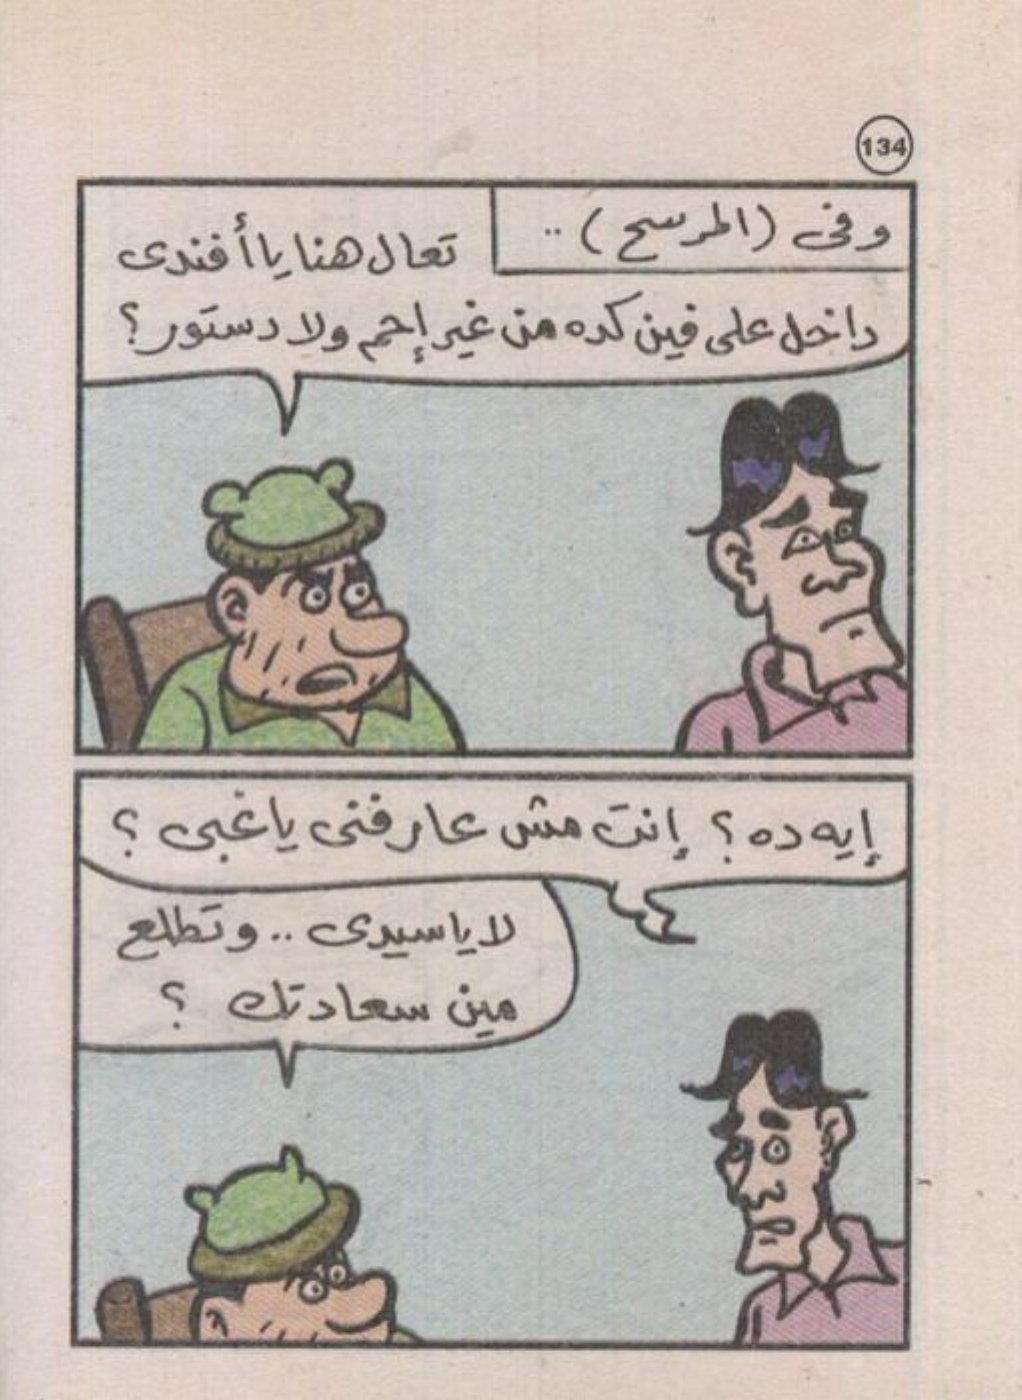 134
وفى (المرسح) ..
تعال هنا يا أفندى
داخل على فين كده من غير إحم ولا دستور؟
إيه ده؟ إنت مش عارفنى ياغبى؟
لا ياسيدى .. وتطلع
مين سعادتك ؟